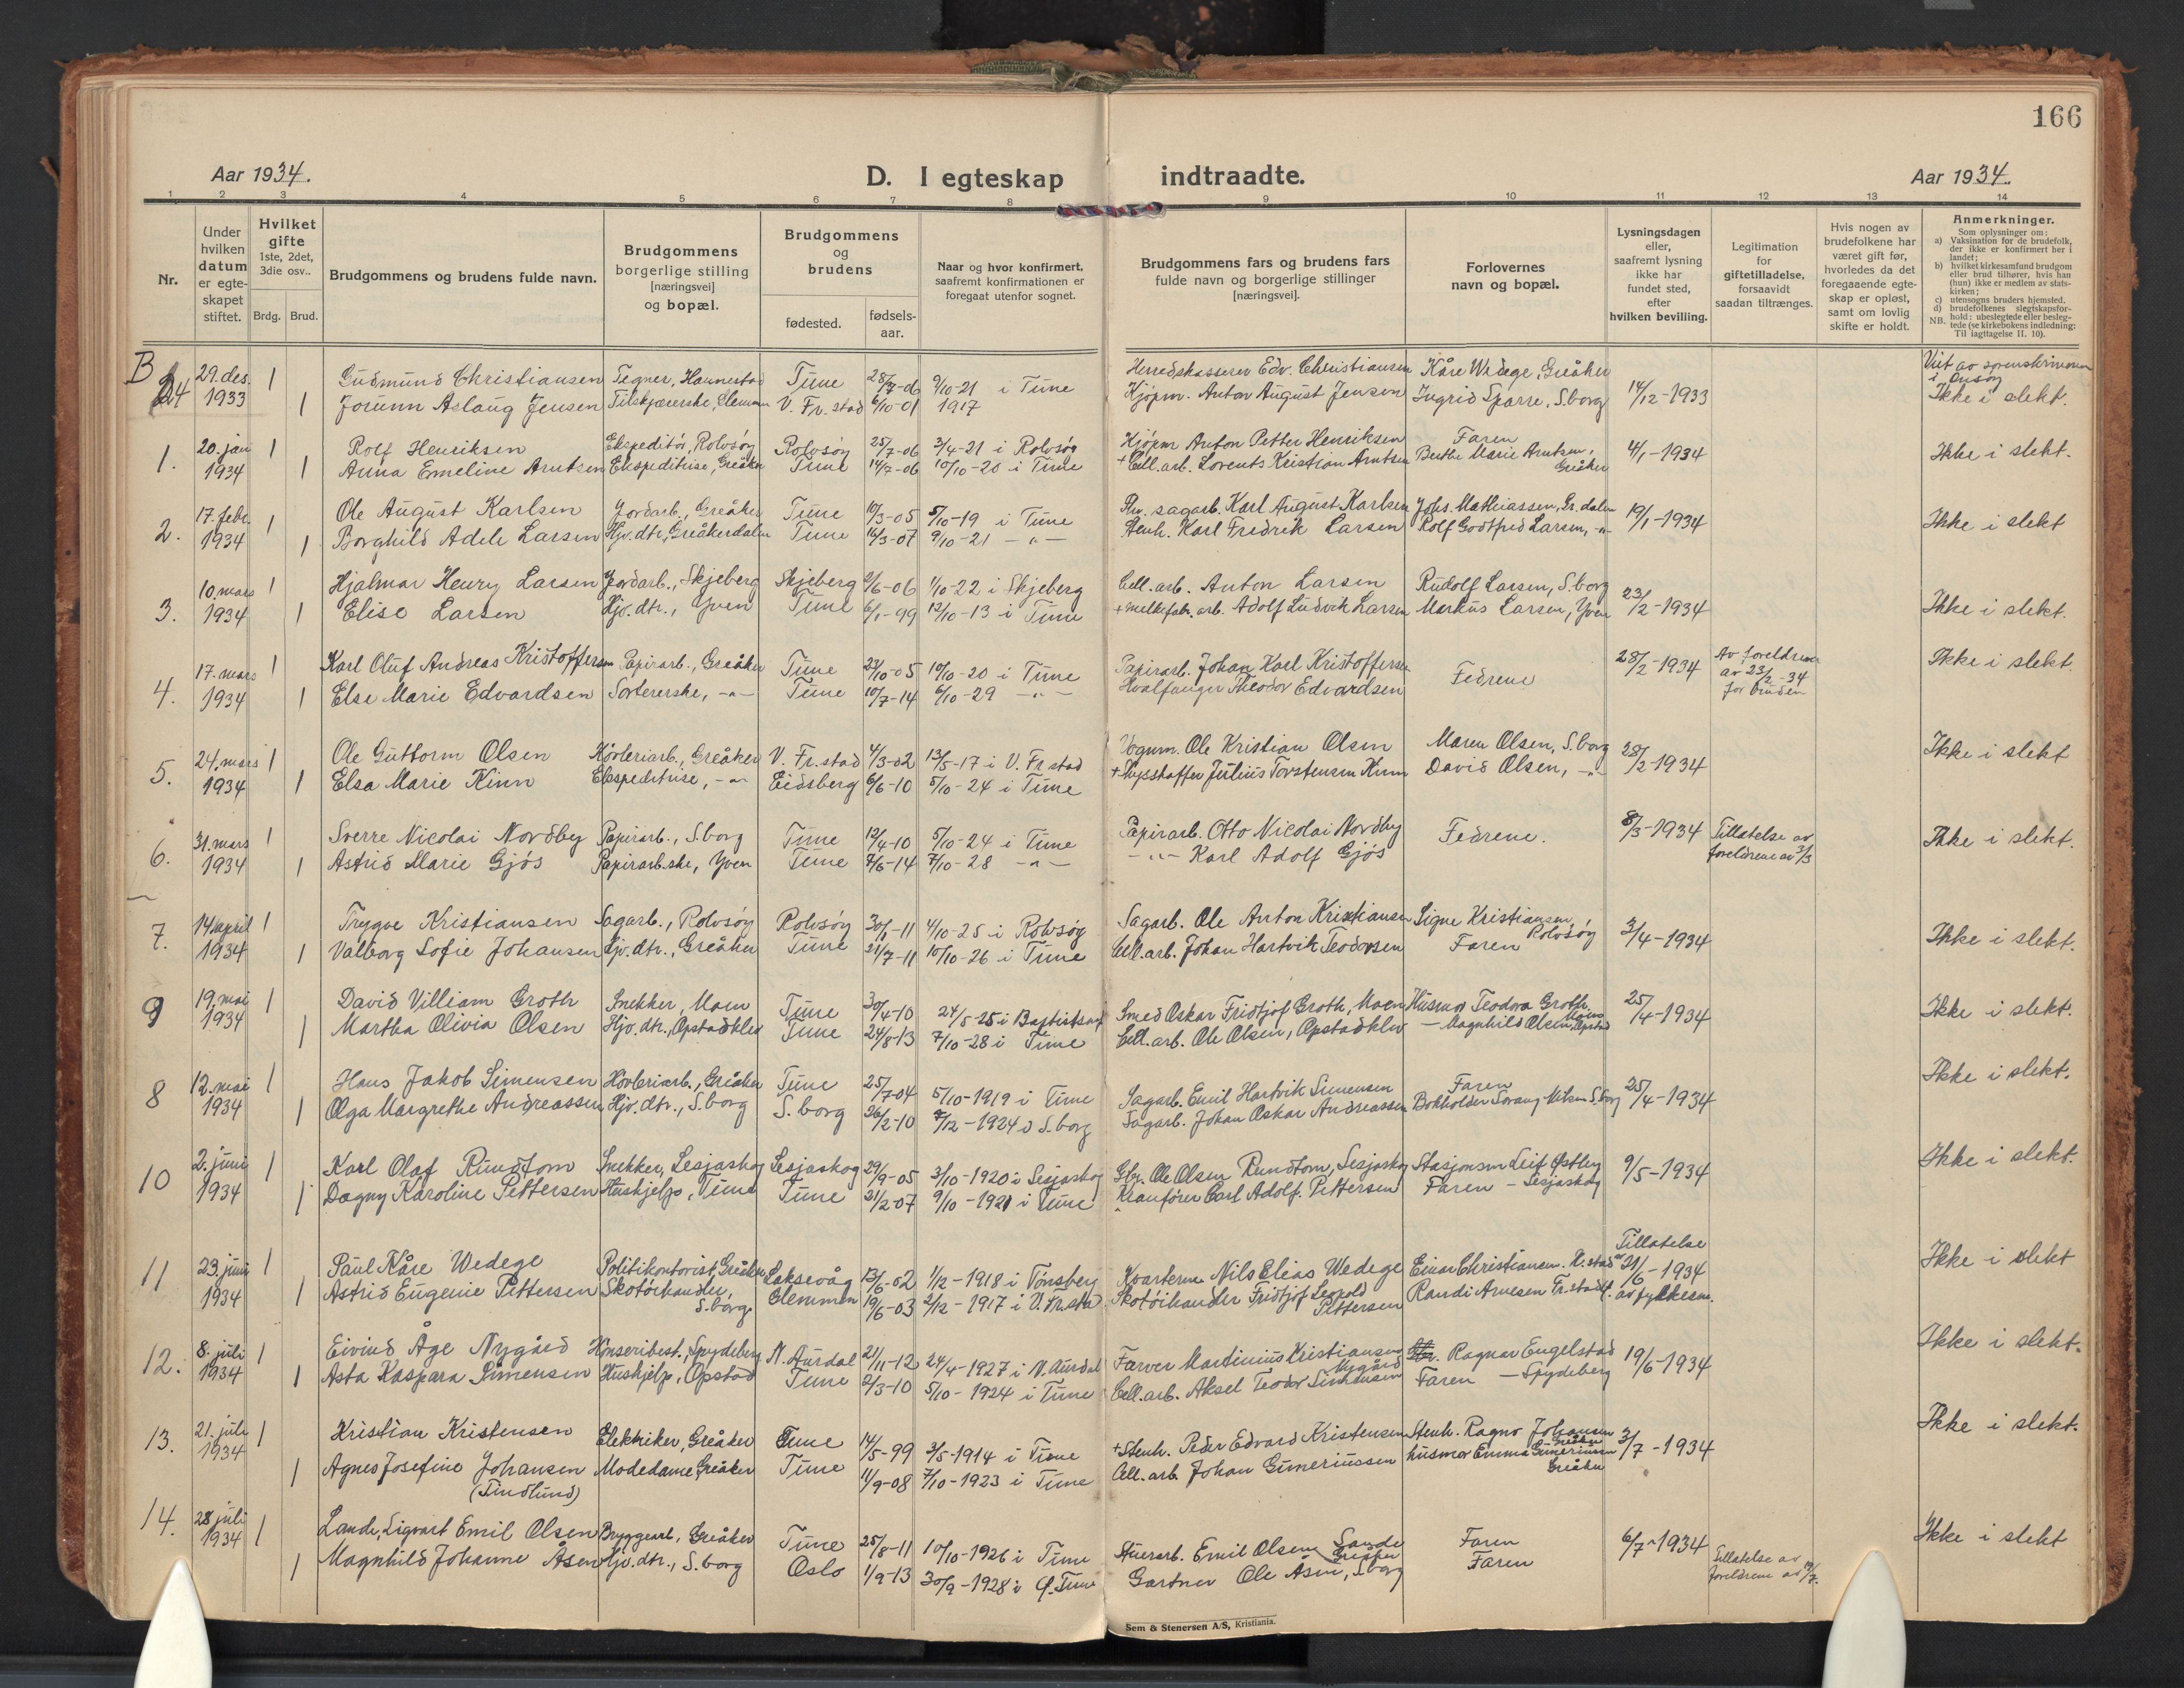 166
Aar 1934.
D. I egteskap indtraadte.
Aar 1934.
1 2 3 4 5 6 7 8 9 10 11 12 13 14
Nr.
Under hvilken datum er egte-skapet stiftet.
Hvilket gifte 1ste, 2det, 3die osv..
Brdg. Brud.
Brudgommens og brudens fulde navn.
Brudgommens borgerlige stilling [næringsvei] og bopæl.
Brudgommens og brudens
fødested.
fødsels-aar.
Naar og hvor konfirmert, saafremt konfirmationen er foregaat utenfor sognet.
Brudgommens fars og brudens fars fulde navn og borgerlige stillinger [næringsvei].
Forlovernes navn og bopæl.
Lysningsdagen eller, saafremt lysning ikke har fundet sted, efter hvilken bevilling.
Legitimation for giftetilladelse, forsaavidt saadan tiltrænges.
Hvis nogen av brudefolkene har været gift før, hvorledes da det foregaaende egte-skap er opløst, samt om lovlig skifte er holdt.
Anmerkninger.
Som oplysninger om:
a) Vaksination for de brudefolk, der ikke er konfirmert her i landet;
b) hvilket kirkesamfund brudgom eller brud tilhører, hvis han (hun) ikke er medlem av stats-kirken;
c) utensogns bruders hjemsted.
d) brudefolkenes slegtskapsfor-hold: ubeslegtede eller besleg-tede (se kirkebokens indledning: Til iagttagelse II. 10).
NB.
B 24 29. des. 1 Gudmund Christiansen Tegner, Hannestad Tune 28/7-06 9/10-21 i Tune Herredskasserer Edv. Christiansen Kåre Wedege, Greåker 14/12-1933 Viet av sogneskriveren i Onsøy
1933 1 Jorunn Aslaug Jensen Tilskjærerske, Glemmen V. Fr.stad 6/10-01 1917 Kjøpm. Anton August Jensen Ingrid Sparre, S.borg Ikke i slekt.
1. 20. jan 1 Rolf Henriksen Ekspeditør, Rolvsøy Rolvsøy 25/7-06 3/4-21 i Rolvsøy Kjøpm Anton Petter Henriksen Faren 4/1-1934 Ikke i slekt.
1934 1 Anna Emeline Arntsen Ekspeditrise, Greåker Tune 14/7-06 10/10-20 i Tune + Cell.arb. Lorents Kristian Arntsen Berthe Marie Arntsen, Greåker
2. 17. febr. 1 Ole August Karlsen Jordarb., Greåker Tune 10/3-05 5/10-19 i Tune sagarb. Karl August Karlsen Johs. Mathiassen, Gr.dalen 19/1-1934 Ikke i slekt
1934 1 Borghild Adele Larsen Hjv.dtr, Greåkerdalen Tune 16/3-07 9/10-21 -"- Stenh. Karl Fredrik Larsen Rolf Godtfred Larsen, -"-
3. 10. mars 1 Hjalmar Henry Larsen Jordarb., Skjeberg Skjeberg 2/6-06 1/10-22 i Skjeberg Cell.arb. Anton Larsen Rudolf Larsen, S.borg 23/2-1934 Ikke i slekt.
1934 1 Elise Larsen Hjv.dtr., Yven Tune 6/1-99 12/10-13 i Tune + melkefabr.arb. Adolf Ludvik Larsen Markus Larsen, Yven
4. 17. mars 1 Karl Oluf Andreas Kristoffersen Papirarb., Greåker Tune 23/10-05 10/10-20 i Tune Papirarb. Johan Karl Kristoffersen Fedrene 28/2-1934 Av foreldrene av 23/2-34 for bruden Ikke i slekt.
1934 1 Else Marie Edvardsen Sortererske, -"- Tune 10/7-14 6/10-29 -"- Hvalfanger Theodor Edvardsen
5. 24. mars 1 Ole Guttorm Olsen Høvleriarb., Greåker V. Fr.stad 4/3-02 13/5-17 i V. Fr.stad Vognm. Ole Kristian Olsen Maren Olsen, S.borg 28/2-1934 Ikke i slekt
1934 1 Elsa Marie Kinn Ekspeditrise, -"- Eidsberg 6/6-10 5/10-24 i Tune Julius Torstensen Kinn David Olsen, -"-
6. 31. mars 1 Sverre Nicolai Nordby Papirarb., S.borg Tune 12/4-10 5/10-24 i Tune Papirarb. Otto Nicolai Nordby Fedrene. 8/3-1934 Tillatelse av foreldrene av 3/3 Ikke i slekt.
1934 1 Astrid Marie Gjøs Papirarb.ske, Yven Tune 7/6-14 7/10-28 -"- -"- Karl Adolf Gjøs
7. 14. april 1 Trygve Kristiansen Sagarb., Rolvsøy Rolvsøy 30/6-11 4/10-25 i Rolvsøy Sagarb. Ole Anton Kristiansen Signe Kristiansen, Rolvsøy 3/4-1934 Ikke i slekt.
1934 1 Valborg Sofie Johansen Hjv.dtr., Greåker Tune 21/7-11 10/10-26 i Tune Cell.arb. Johan Hartvik Teodorsen Faren
9 19. mai 1 David Villiam Groth Snekker, Moen Tune 30/4-10 24/5-25 i Baptistsamf Smed Oskar Fridtjof Groth, Moen Husmor Teodora Groth, Moen 25/4-1934 Ikke i slekt.
1934 1 Martha Olivia Olsen Hjv.dtr., Opstadklev Tune 24/8-13 7/10-28 i Tune Cell.arb. Ole Olsen, Opstadklev — Magnhild Olsen, Opstad
8 12. mai 1 Hans Jakob Simensen Høvleriarb., Greåker Tune 25/7-04 5/10-1919 i Tune Sagarb. Emil Hartvik Simensen Faren 25/4-1934 Ikke i slekt.
1934 1 Olga Margrethe Andreassen Hjv.dtr., S.borg S.borg 26/2-10 7/12-1924 i S.borg Sagarb. Johan Oskar Andreassen Bokholder S.borg
10 2. juni 1 Karl Olaf Rundtom Snekker, Lesjaskog Lesjaskog 29/9-05 3/10-1920 i Lesjaskog Gbr. Ole Olsen Rundtom, Lesjaskog Stasjonsm Leif Østby 9/5-1934 Ikke i slekt.
1934 1 Dagny Karoline Pettersen Huskjelp, Tune Tune 21/2-07 9/10-1921 i Tune Kranfører Carl Adolf Pettersen Faren — Lesjaskog
11 23. juni 1 Paul Kåre Wedege Politikontorist, Greåker Laksevåg 13/6-02 1/12-1918 i Tønsberg Kvarterm. Nils Elias Wedege Einar Christiansen. H.stad Tillatelse av 21/6-1934 Ikke i slekt
1934 1 Astrid Eugenie Pettersen Skotøihandler, S.borg Glemmen 19/6-03 2/12-1917 i V.Fr.stad Skotøihandler Fridtjof Leopold Pettersen Randi Arnesen Fr.stad av fylkesm.
12. 8. juli 1 Eivind Åge Nygård Hønseribest., Spydeberg N. Aurdal 21/11-12 24/4-1927 i N. Aurdal Farver Martinius Kristiansen Nygård Ragnar Engelstad 19/6-1934 Ikke i slekt.
1934 1 Asta Kaspara Simensen Huskjelp, Opstad Tune 2/3-10 5/10-1924 i Tune Cell.arb. Aksel Teodor Simensen Faren — Spydeberg
13. 21. juli 1 Kristian Kristensen Elektriker, Greåker Tune 14/5-99 3/5-1914 i Tune + Stenh. Peder Edvard Kristensen Stenh. Ragno Johansen Greåker 3/7-1934 Ikke i slekt.
1934 1 Agnes Josefine Johansen (Tindlund) Modedame, Greåker Tune 11/9-08 7/10-1923 i Tune Cell.arb. Johan Guneriussen husmor Emma Guneriussen Greåker
14. 28 juli 1 Lande, Sigvart Emil Olsen Bryggearb., Greåker Tune 25/8-11 10/10-1926 i Tune Stuerarb. Emil Olsen Lande Greåker Faren 6/7-1934 Tillatelse av foreldrene av 19/7. Ikke i slekt
1934 1 Magnhild Johanne Åsen Hjv.dtr., S.borg Oslo 1/9-13 30/9-1928 i Ø.Tune Gartner Ole Åsen, S.borg Faren
Sem & Stenersen A/S, Kristiania.